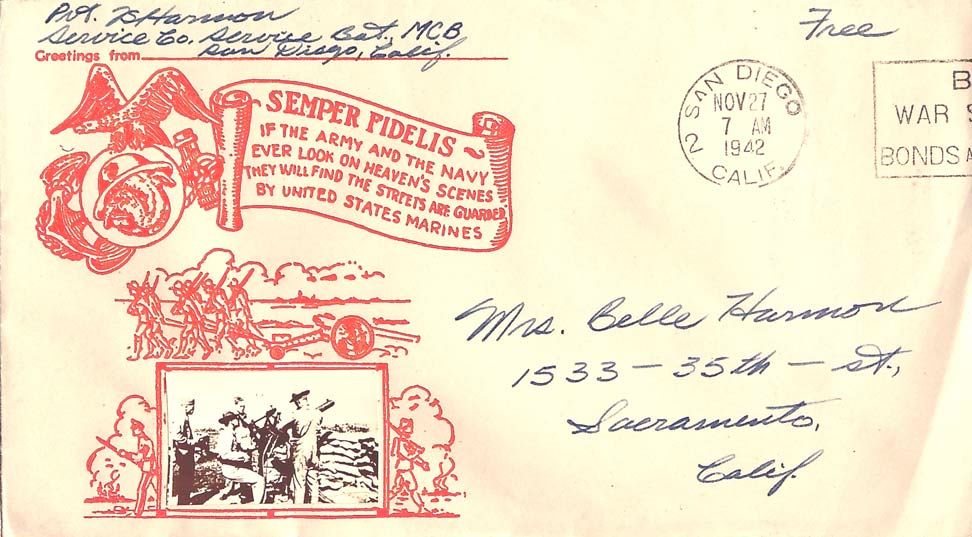 Pvt. D Harmon
Service Co. Service Bat., MCB
Greetings from San Diego, Calif.
Free
SEMPER FIDELIS
IF THE ARMY AND THE NAVY
EVER LOOK ON HEAVEN'S SCENES
THEY WILL FIND THE STREETS ARE GUARDED
BY UNITED STATES MARINES
SAN DIEGO
NOV 27
7 AM
1942
2 CALIF.
B
WAR S
BONDS A
Mrs. Belle Harmon
1533 - 35th - st.,
Sacramento,
Calif.